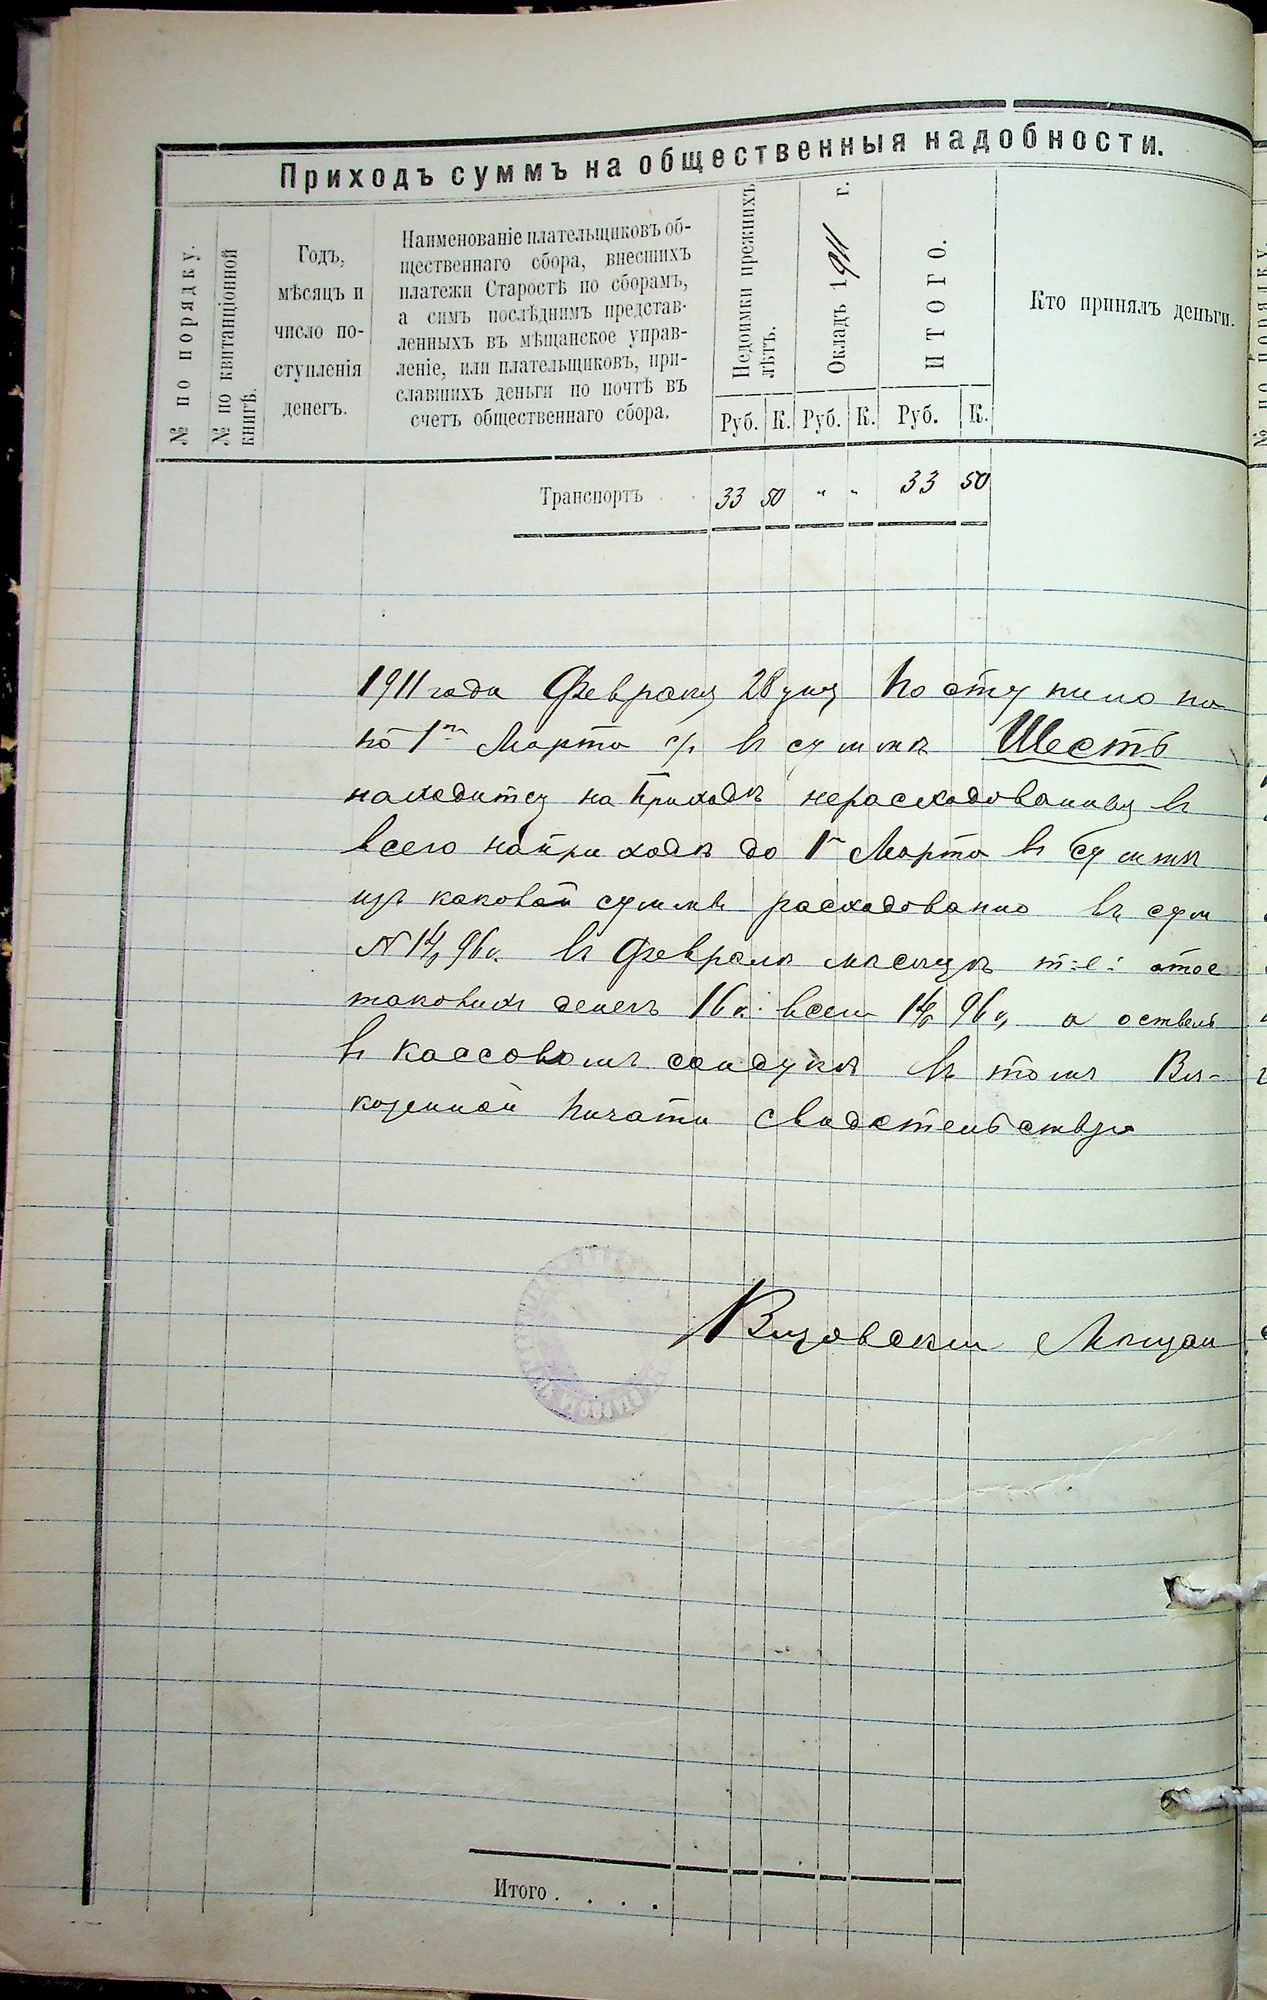 Приходъ суммъ на общественныя надобности.
№ по порядку.
№ по квитанціонной
книгѣ.
Годъ,
мѣсяцъ и
число по-
ступленія
денегъ.
Наименованіе плательщиковъ об-
щественнаго сбора, внесшихъ
платежи Старостѣ по сборамъ,
а симъ послѣднимъ представ-
ленныхъ въ мѣщанское управ-
леніе, или плательщиковъ, при-
славшихъ деньги по почтѣ въ
счетъ общественнаго сбора.
Недоимки прежнихъ
лѣтъ.
Окладъ 1911 г.
ИТОГО.
Кто принялъ деньги.
Руб. К. Руб. К. Руб. К.
Транспортъ 33 50 " " 33 50
1911 года Февраля 28 дня Поступило на
по 1е Марта с/г въ суммѣ Шесть
находится на Приходѣ нерасходованныя въ
всего наприходѣ до 1е Марта въ суммѣ
изъ каковой суммы расходовано въ сум
14р 96к. въ Февралѣ мѣсяцѣ т:е:
таковыхъ денегъ 16к. всего 14р 96к, а
въ кассовомъ сондукѣ въ томъ
казенной Пичати свидѣтельствую
Мѣщан
Итого . . . .
№ по порядку.